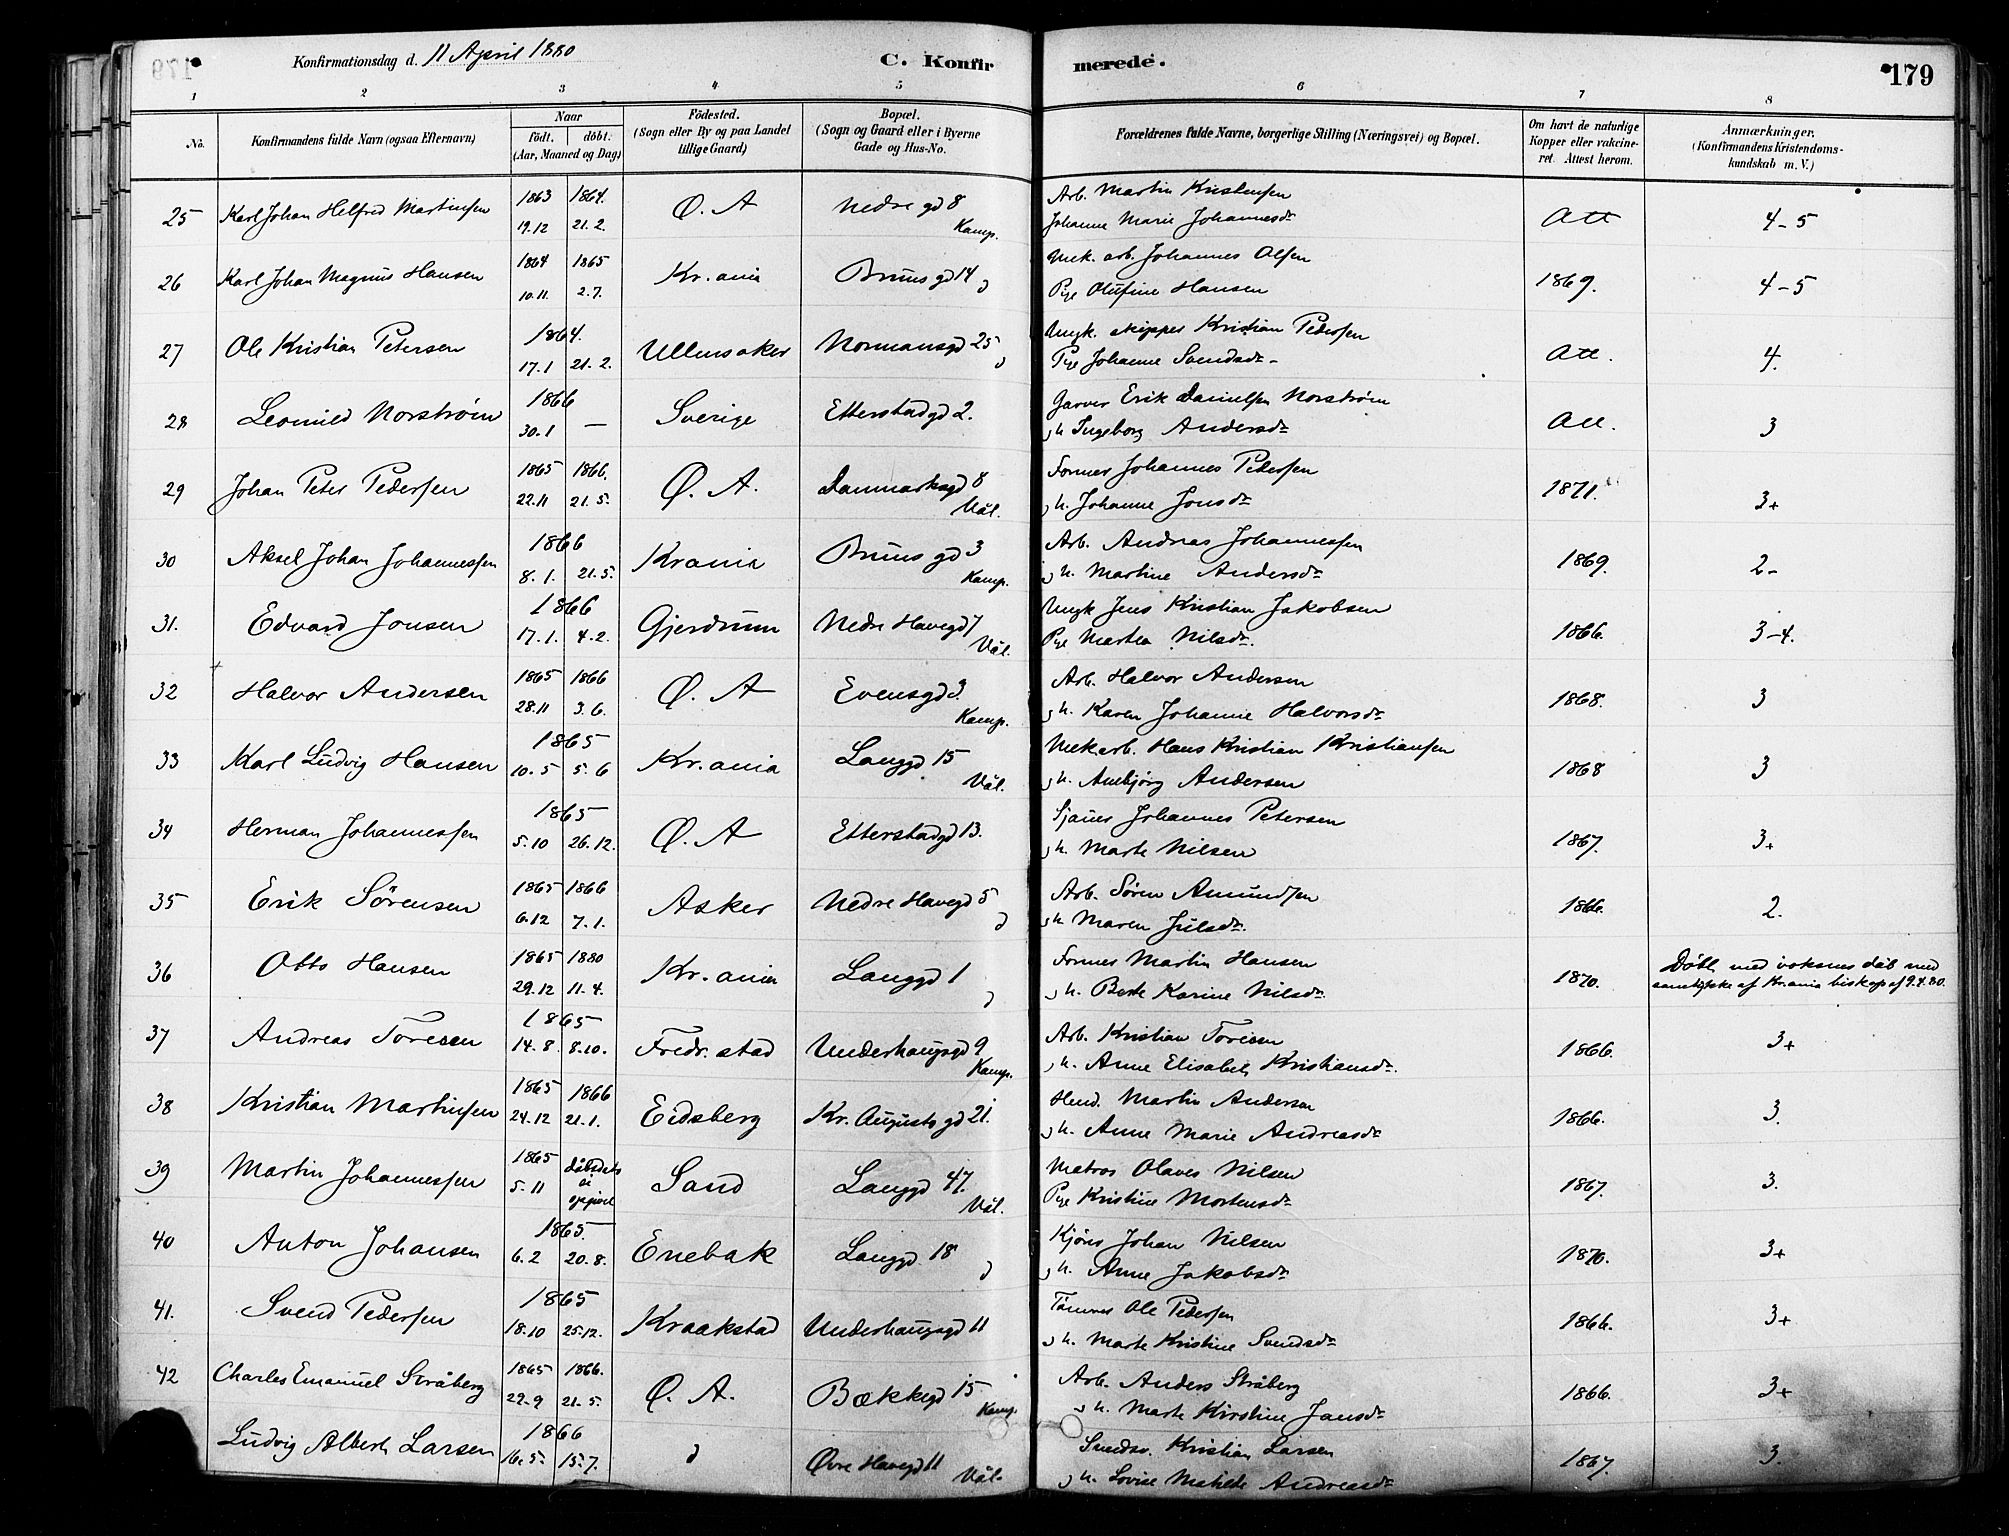 Konfirmationsdag d. 11 April 1880
C. Konfirmerede.
179
1 2 3 4 5 6 7 8
No.
Konfirmandens fulde Navn (ogsaa Efternavn)
Naar
födt. döbt.
(Aar, Maaned og Dag)
Födested.
(Sogn eller By og paa Landet tillige Gaard)
Bopæl.
(Sogn og Gaard eller i Byerne Gade og Hus-No.
Forældrenes fulde Navne, borgerlige Stilling (Næringsvei) og Bopæl.
Om havt de naturlige Kopper eller vakcineret. Attest herom.
Anmærkninger.
(Konfirmandens Kristendomskundskab m. V.)
25 Karl Johan Helfred Martinsen 1863 19.12 1864. 21.2. Ø. A Nedre gd 8 Kamp. Arb. Martin Kristensen Johanne Marie Johannesdr Att 4-5
26 Karl Johan Magnus Hansen 1864 10.11. 1865 2.7. Kr.ania Bruns gd 14 Mek. arb. Johannes Olsen Pige Olufine Hansen 1869. 4-5
27 Ole Kristian Petersen 1864. 17.1 21.2. Ullensaker Normansgd 25 Ungk. skipper Kristian Pedersen Pige Johanne Svendsdr Att. 4.
28 Leonild Norström 1866 30.1 — Sverige Etterstadgd 2. Garver Erik Danielsen Norström h. Ingeborg Andersdr Att. 3
29 Johan Peter Pedersen 1865 22.11 1866. 21.5. Ø. A. Danmarksgd 8 Vål. Former Johannes Pedersen h. Johanne Jonsdr 1871. 3+
30 Aksel Johan Johannessen 1866 8.1. 21.5. Krania Bruns gd 3 Kamp. Arb. Andreas Johannessen h. Martine Andersdr 1869. 2-
31. Edvard Jonsen 1866 17.1. 4.2. Gjerdrum Nedre Havegd 7 Vål. Ungk Jens Kristian Jakobsen Pige Martea Nilsdr. 1866. 3-4.
32 Halvor Andersen 1865 28.11 1866 3.6. Ø. A Evensgd 3. Kamp. Arb. Halvor Andersen h. Karen Johanne Halvorsdr 1868. 3
33 Karl Ludvig Hansen 1865 10.5 5.6 Kr.ania Langgd 15 Vål. Mekarb. Hans Kristian Kristiansen h. Anebjørg Andersen 1868 3
34 Herman Johannessen 1865 5.10 26.12. Ø. A Etterstadgd 13. Sjauer Johannes Petersen h. Marte Nilsen 1867. 3+
35 Erik Sörensen 1865 6.12 1866 7.1. Asker Nedre Havegd 5 Arb. Sören Amundsen h Maren Julsdr. 1866. 2.
36 Otto Hansen 1865 29.12 1880 11.4. Kr.ania Langgd 1 Former Martin Hansen h. Berte Karine Nilsdr. 1870. Döbt med voksnes dåb med samtykke af Kr.ania biskop af 9.4.80.
37 Andreas Toresen 1865 14.8. 8.10. Fredr.stad Underhaugsgd 9 Kamp. Arb. Kristian Toresen h. Anne Elisabeth Kristiansdr. 1866. 3+
38 Kristian Martinsen 1865 24.12 1866 21.1. Eidsberg Kr. Augusts gd 21. Hand. Martin Andersen h. Anne Marie Andreasdr 1866. 3.
39 Martin Johannessen 1865 5.11 dåbsdato ei opgivet Sand Langgd 47. Vål. Matros Olaves Nilsen Pige Kristine Mortensdr 1867. 3.
40 Anton Johansen 1865. 6.2 20.8. Enebak Langgd. 18 Kjöris Johan Nilsen h. Anne Jakobsdr 1870. 3+
41. Svend Pedersen 1865 18.10 25.12. Kraakstad Underhaugsgd 11 Tömmr Ole Pedersen h. Marte Kristine Svendsdr 1866. 3+
42 Charles Emanuel Stråberg 1865 22.9 1866. 21.5. Ø. A. Bækkegd 15 Kamp. Arb. Anders Stråberg h. Marte Kirstine Jansdr 1866. 3+
Ludvig Albert Larsen 1866 16.5. 15.7. Øvre Havegd 11 Vål. Kristian Larsen h. Lovise Matilde Andreasdr 1867. 3.